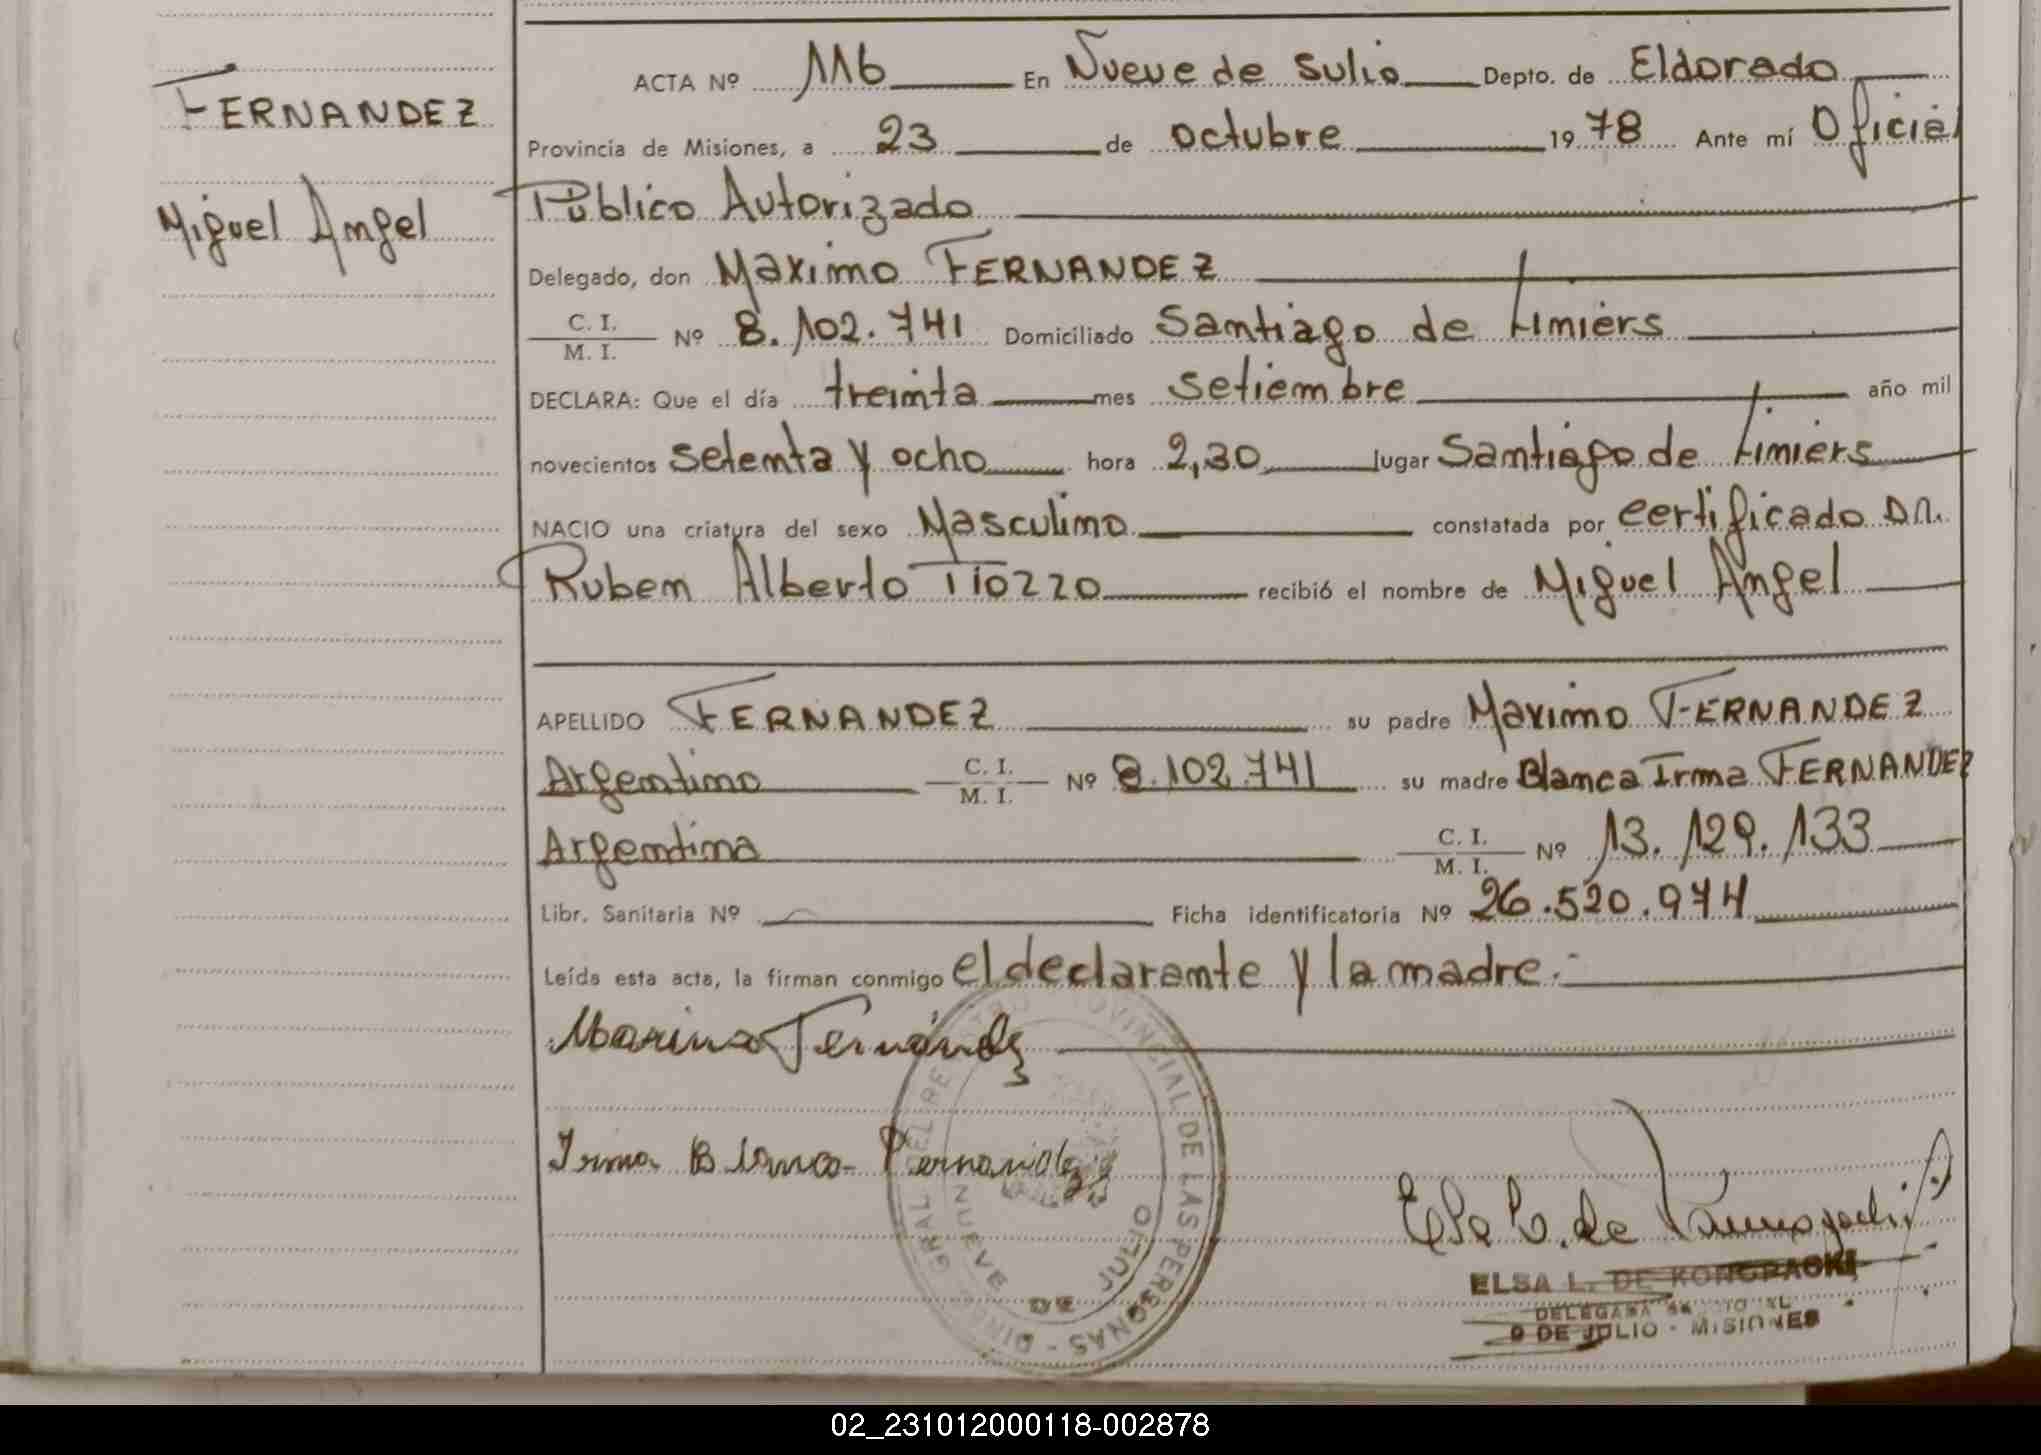 FERNANDEZ
Miguel Angel
ACTA Nº 116 En Nueve de Julio Depto. de Eldorado
Provincia de Misiones, a 23 de octubre 1978 Ante mí Oficial
Público Autorizado
Delegado, don Maximo FERNANDEZ
C. I.
M. I. Nº 8.102.741 Domiciliado Santiago de Limiers
DECLARA: Que el día treinta mes setiembre año mil
novecientos setenta y ocho hora 2,30 lugar Santiago de Limiers
NACIO una criatura del sexo Masculino constatada por certificado DR.
Ruben Alberto TIOZZO recibió el nombre de Miguel Angel
APELLIDO FERNANDEZ su padre Maximo FERNANDEZ
Argentino C. I.
M. I. Nº 8.102.741 su madre Blanca Irma FERNANDEZ
Argentina C. I.
M. I. Nº 13.129.133
Libr. Sanitaria Nº Ficha identificatoria Nº 26.520.974
Leída esta acta, la firman conmigo el declarante y la madre.-
Maximo Fernández
Irma Blanca Fernandez
GRAL. DEL REGISTRO PROVINCIAL DE LAS PERSONAS - DIR
NUEVE DE JULIO
Elsa L. de
ELSA L. DE KONOPACKI
DELEGADA
9 DE JULIO - MISIONES
02_231012000118-002878